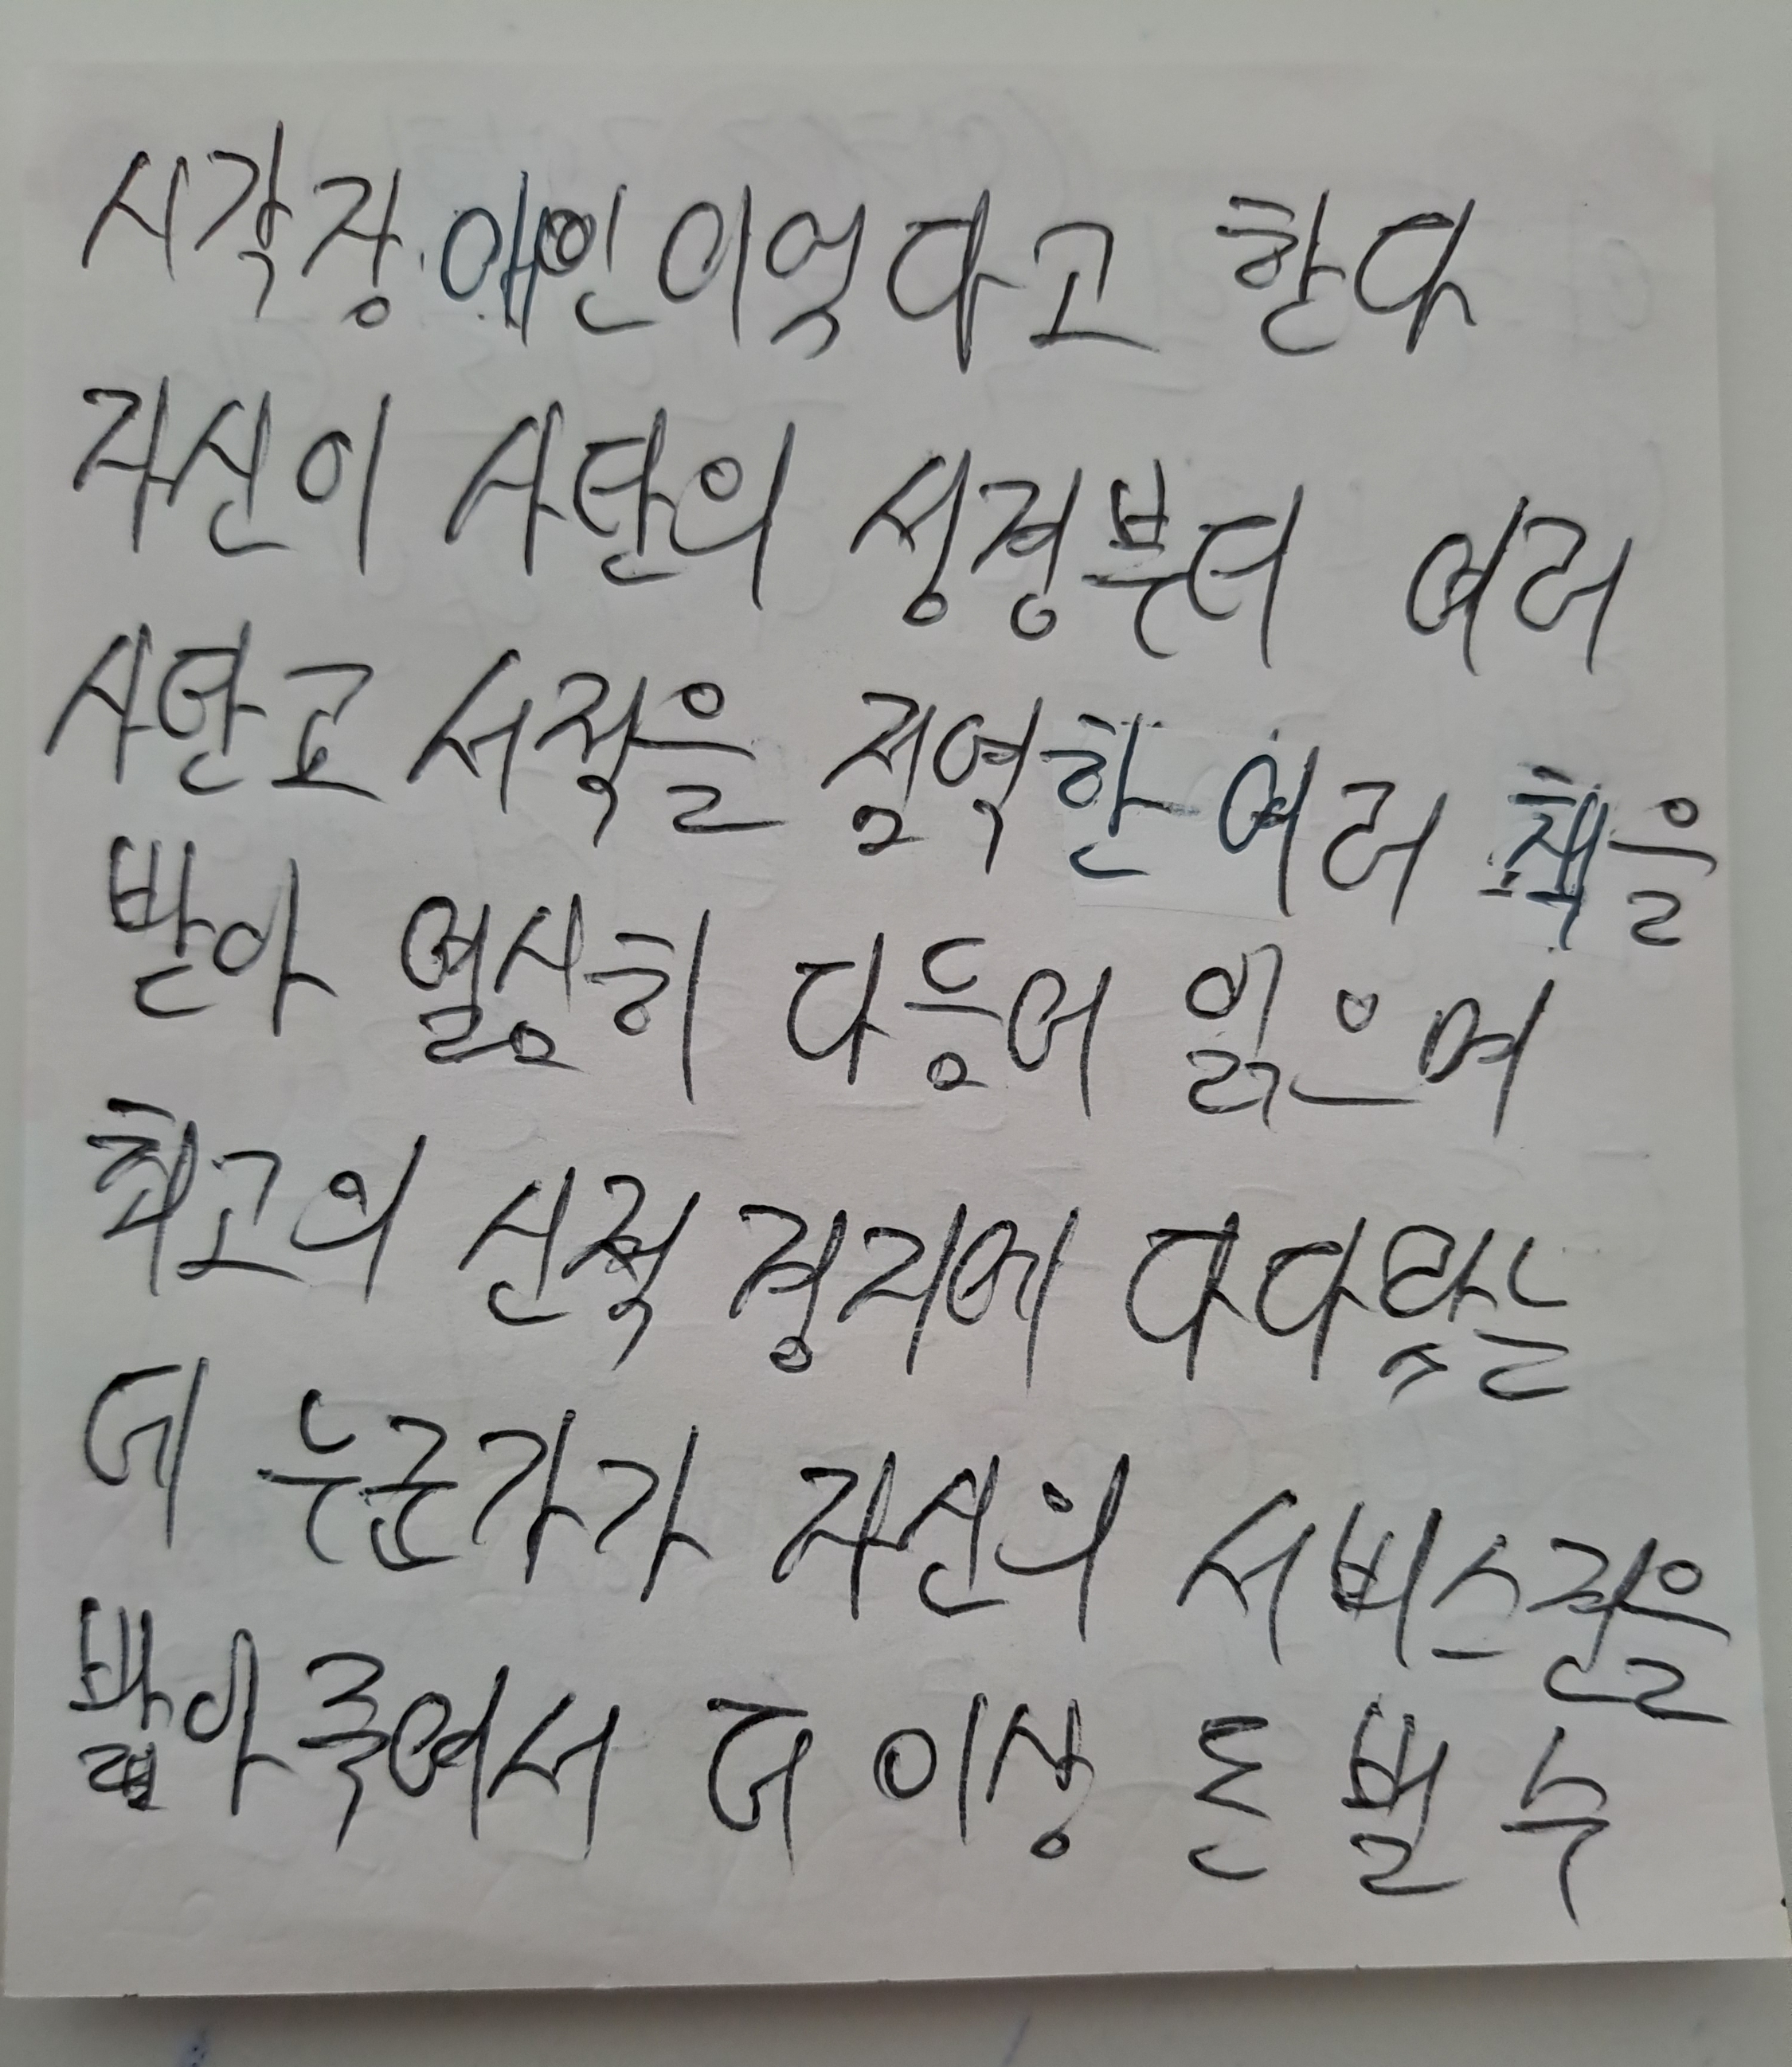 시각장애인이었다고 한다
자신이 사탄의 성경부터 여러
사탄교 서적을 점역한 여러 책을
받아 열심히 더듬어 읽으며
최고의 신적 경지에 다다랐는
데 누군가가 자신의 서비스건을
밟아 죽여서 더 이상 돈 벌 수